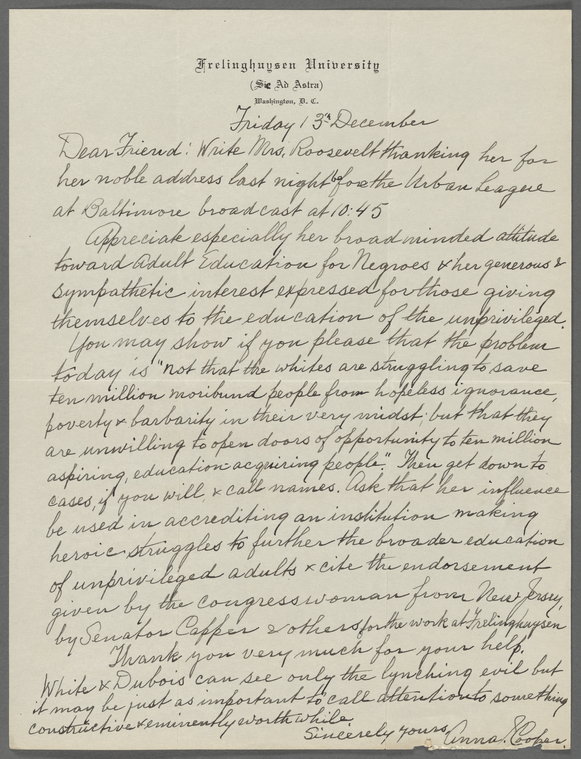 Frelinghuysen University
(Sic Ad Astra)
Washington, D. C.
Friday 13th December
Dear Friend: Write Mrs. Roosevelt thanking her for
her noble address last night before the Urban League
at Baltimore broadcast at 10:45
Appreciate especially her broad minded attitude
toward Adult Education for Negroes & her generous &
sympathetic interest expressed for those giving
themselves to the education of the unprivileged.
You may show if you please that the problem
today is "not that the whites are struggling to save
ten million moribund people from hopeless ignorance,
poverty & barbarity in their very midst; but that they
are unwilling to open doors of opportunity to ten million
aspiring, education acquiring people". Then get down to
cases, if you will, & call names. Ask that her influence
be used in accrediting an institution making
heroic struggles to further the broader education
of unprivileged adults & cite the endorsement
given by the congresswoman from New Jersey,
by Senator Capper & others for the work at Frelinghuysen
Thank you very much for your help.
White & Dubois can see only the lynching evil but
it may be just as important to call attention to something
constructive & eminently worth while.
Sincerely yours, Anna J. Cooper.